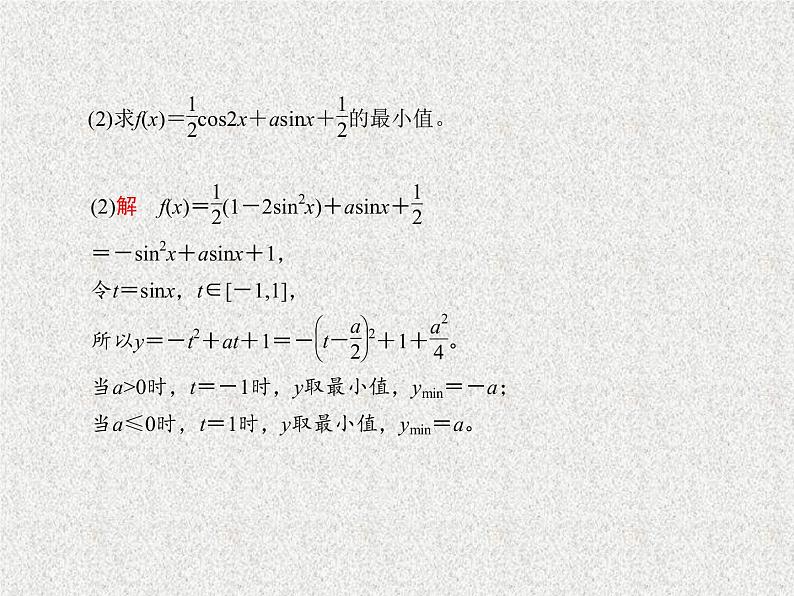 (2)求f(x)=\frac{1}{2}cos2x+asinx+\frac{1}{2}的最小值。
(2)解 f(x)=\frac{1}{2}(1-2sin²x)+asinx+\frac{1}{2}
=-sin²x+asinx+1,
令t=sinx,t∈[-1,1],
所以y=-t²+at+1=-\left(t-\frac{a}{2}\right)²+1+\frac{a²}{4}。
当a>0时,t=-1时,y取最小值,y_{min}=-a;
当a≤0时,t=1时,y取最小值,y_{min}=a。